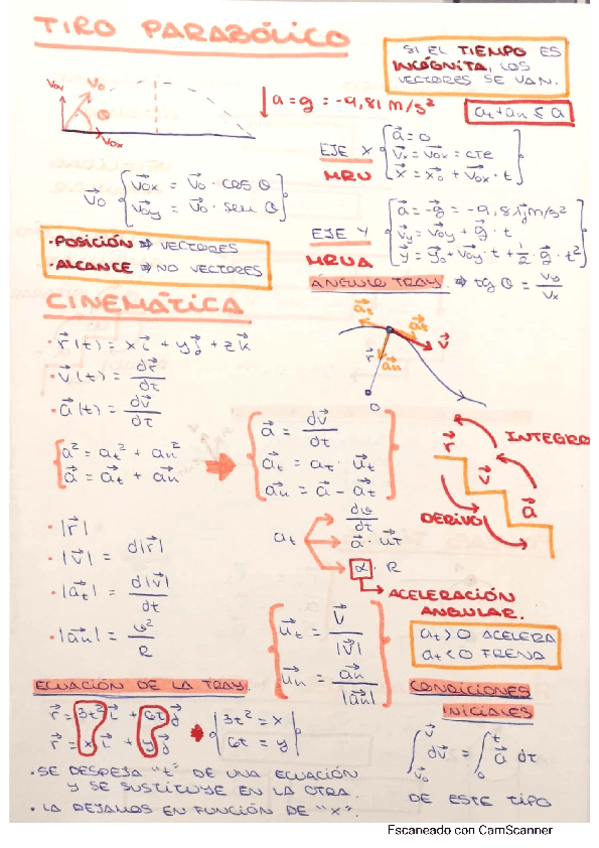 TIRO PARABÓLICO
SI EL TIEMPO ES
INCÓGNITA, LOS
VECTORES SE VAN.
V₀y V₀ θ V₀x
↓ a = g = -9,81 m/s²
at + an ≤ a
V⃗₀ { V⃗₀x = V⃗₀ · cos θ
V⃗₀y = V⃗₀ · sen θ
EJE X { a⃗ = 0
V⃗x = V⃗₀x = cte
MRU x⃗ = x⃗₀ + V⃗₀x · t
· POSICIÓN ⇒ VECTORES
· ALCANCE ⇒ NO VECTORES
EJE Y { a⃗ = -g⃗ = -9,81 j⃗ m/s²
V⃗y = V⃗₀y + g⃗ · t
MRUA y⃗ = y⃗₀ + V⃗₀y · t + 1/2 · g⃗ · t²
ÁNGULO TRAY. ⇒ tg θ = Vy/Vx
CINEMÁTICA
· r⃗(t) = x i⃗ + y j⃗ + z k⃗
· V⃗(t) = dr⃗/dt
· a⃗(t) = dv⃗/dt
r⃗ V⃗ 0
a² = at² + an²
a⃗ = a⃗t + a⃗n
a⃗ = dv⃗/dt
a⃗t = at · u⃗t
a⃗n = a⃗ - a⃗t
r⃗ V⃗ a⃗
INTEGRO
DERIVO
· |r⃗|
· |V⃗| = d|r⃗|
· |a⃗t| = d|v⃗|/dt
· |a⃗n| = v²/R
at
dv/dt
a⃗ · u⃗t
α · R
ACELERACIÓN
ANGULAR.
u⃗t = V⃗/|V⃗|
u⃗n = a⃗n/|a⃗n|
at > 0 ACELERA
at < 0 FRENA
ECUACIÓN DE LA TRAY.
r⃗ = 3t² i⃗ + 6t j⃗
r⃗ = x i⃗ + y j⃗
3t² = x
6t = y
· SE DESPEJA "t" DE UNA ECUACIÓN
Y SE SUSTITUYE EN LA OTRA.
· LA DEJAMOS EN FUNCIÓN DE "x".
CONDICIONES
INICIALES
∫V⃗₀^V⃗ dv⃗ = ∫₀^t a⃗ dt
DE ESTE TIPO
Escaneado con CamScanner